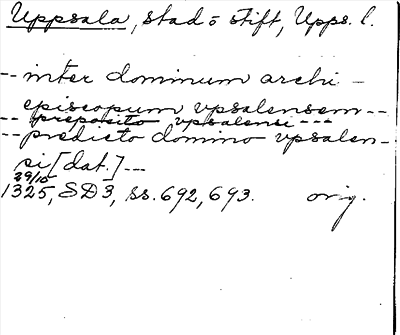 Uppsala, stad o stift, Upps. l.
-- inter dominum archi-
episcopum vpsalensem --
-- preposito vpsalensi ---
-- predicto domino vpsalen-
si [dat.] ---
29/10
1325, SD3, ss. 692, 693. orig.